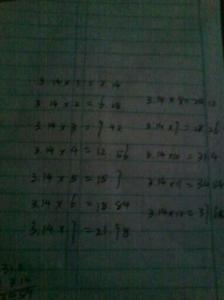 3.14 x 1 = 3.14
3.14 x 2 = 6.28
3.14 x 3 = 9.42
3.14 x 4 = 12.56
3.14 x 5 = 15.7
3.14 x 6 = 18.84
3.14 x 7 = 21.98
3.14 x 8 =
3.14 x 9 = 28.26
3.14 x 10 = 31.4
3.14 x 11 = 34.54
3.14 x 12 = 37.68